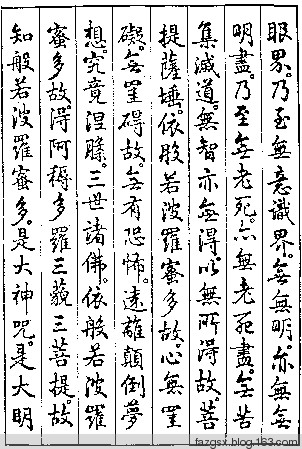 眼界。乃至無意識界。無無明亦無無
明盡。乃至無老死。亦無老死盡。無苦
集滅道。無智亦無得。以無所得故。菩
提薩埵。依般若波羅蜜多故。心無罣
礙。無罣碍故。無有恐怖。遠離顛倒夢
想。究竟涅槃。三世諸佛。依般若波羅
蜜多故。得阿耨多羅三藐三菩提。故
知般若波羅蜜多。是大神咒。是大明
fazgsx.blog.163.com